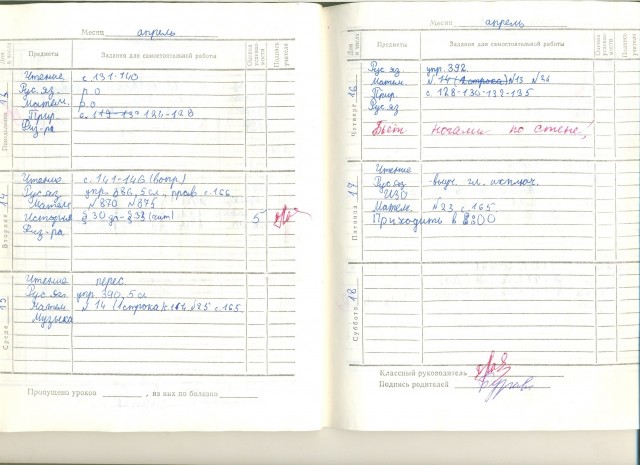 Месяц апрель
Дни и числа Предметы Задания для самостоятельной работы Оценка успеваемости Подпись учителя
Понедельник 13
Чтение с 131-140
Рус.яз. р.о
Матем. р.о
Прир. с. 124-128
Физ-ра
Вторник 14
Чтение с. 141-146 (вопр.)
Рус яз упр 386, 5 сл., прав с.166
Матем №870 №875
История § 30 § 33 (чит) 5
Физ-ра
Среда 15
Чтение перес
Рус.яз. упр 390, 5 сл
Матем N 14 (1 строка) с.164 №25 с.165
Музыка
Пропущено уроков , из них по болезни
Месяц апрель
Дни и числа Предметы Задания для самостоятельной работы Оценка успеваемости Подпись учителя
Четверг 16
Рус яз упр. 392
Матем. N 14 (2 строка) N 15 N 24
Прир. с. 128-130-132-135
Рус яз
Бьёт ногами по стене!
Пятница 17
Чтение
Рус яз -выуч. гл. исключ.
ИЗО
Матем. №23 с.165
Приходить в 8:00
Суббота 18
Классный руководитель
Подпись родителей